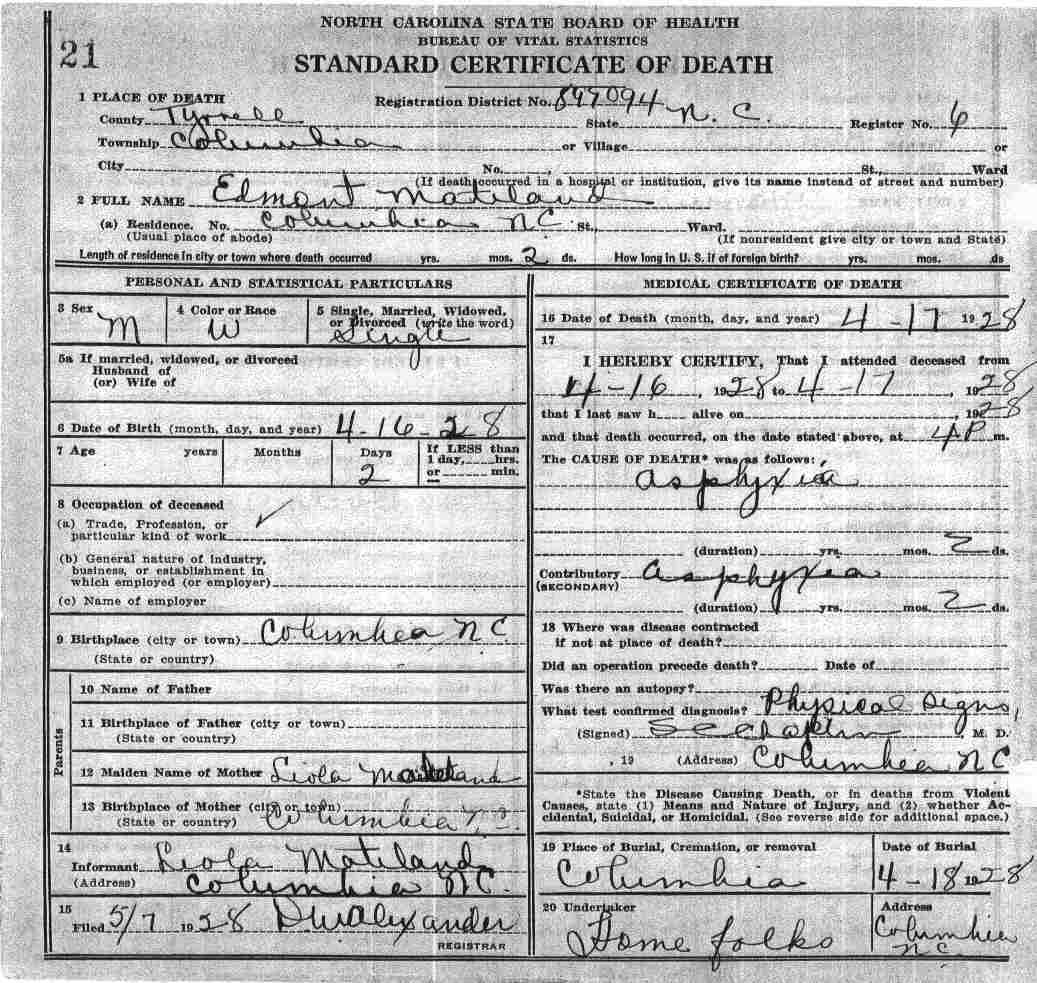 NORTH CAROLINA STATE BOARD OF HEALTH
BUREAU OF VITAL STATISTICS
21
STANDARD CERTIFICATE OF DEATH
1 PLACE OF DEATH
Registration District No. 897094
County Tyrrell State N. C. Register No. 6
Township Columbia or Village or
City No. , St., Ward
(If death occurred in a hospital or institution, give its name instead of street and number)
2 FULL NAME Edmont Mateland
(a) Residence. No. Columbia NC St., Ward.
(Usual place of abode) (If nonresident give city or town and State)
Length of residence in city or town where death occurred yrs. mos. 2 ds. How long in U. S. if of foreign birth? yrs. mos. ds
PERSONAL AND STATISTICAL PARTICULARS
3 Sex M
4 Color or Race W
5 Single, Married, Widowed,
or Divorced (write the word)
Single
5a If married, widowed, or divorced
Husband of
(or) Wife of
6 Date of Birth (month, day, and year) 4-16-28
7 Age years Months Days 2
If LESS than
1 day, hrs.
or min.
8 Occupation of deceased
(a) Trade, Profession, or
particular kind of work
(b) General nature of industry,
business, or establishment in
which employed (or employer)
(c) Name of employer
9 Birthplace (city or town) Columbia NC.
(State or country)
Parents
10 Name of Father
11 Birthplace of Father (city or town)
(State or country)
12 Maiden Name of Mother Liola Mateland
13 Birthplace of Mother (city or town)
(State or country) Columbia N.C.
14
Informant Liola Mateland
(Address) Columbia NC.
15
Filed 5/7 1928 DWAlexander
REGISTRAR
MEDICAL CERTIFICATE OF DEATH
16 Date of Death (month, day, and year) 4-17 1928
17
I HEREBY CERTIFY, That I attended deceased from
4-16, 1928, to 4-17, 1928
that I last saw h alive on , 1928
and that death occurred, on the date stated above, at 4P m.
The CAUSE OF DEATH* was as follows:
Asphyxia
(duration) yrs. mos. 2 ds.
Contributory Asphyxia
(SECONDARY)
(duration) yrs. mos. 2 ds.
18 Where was disease contracted
if not at place of death?
Did an operation precede death? Date of
Was there an autopsy?
What test confirmed diagnosis? Physical Signs,
(Signed) , M. D.
, 19 (Address) Columbia NC
*State the Disease Causing Death, or in deaths from Violent
Causes, state (1) Means and Nature of Injury, and (2) whether Ac-
cidental, Suicidal, or Homicidal. (See reverse side for additional space.)
19 Place of Burial, Cremation, or removal
Columbia
Date of Burial
4-18 1928
20 Undertaker
Home folks
Address
Columbia
NC.